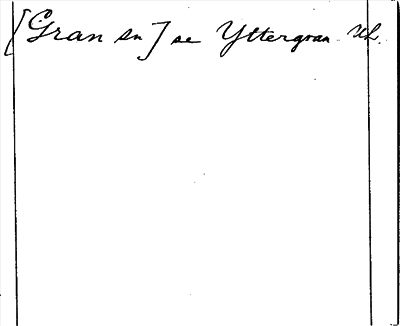 [Gran sn] se Yttergran Uh.